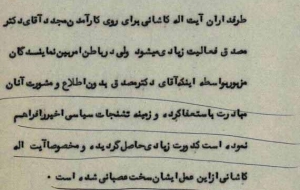 طرفداران آیت اله کاشانی برای روی کارآمدن مجدد آقای دکتر
مصدق فعالیت زیادی میشود ولی در باطن امر بین نمایندگان
مزبور بواسطه اینکه آقای دکتر مصدق بدون اطلاع و مشورت آنان
مبادرت باستعفا کرده و زمینه تشنجات سیاسی اخیر را فراهم
نموده است کدورت زیادی حاصل گردیده و مخصوصا آیت اله
کاشانی از این عمل ایشان سخت عصبانی شده است ۰